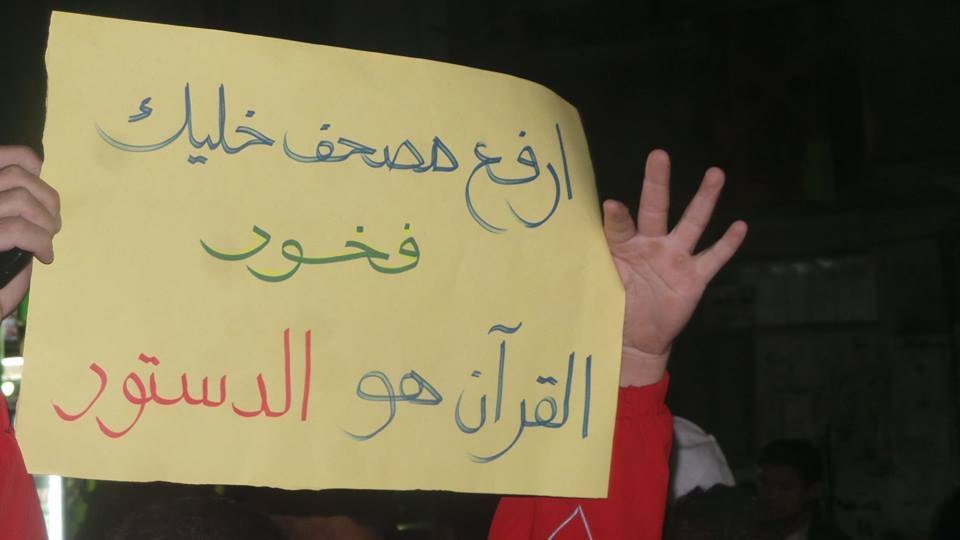 ارفع مصحف خليك
فخور
القرآن هو الدستور